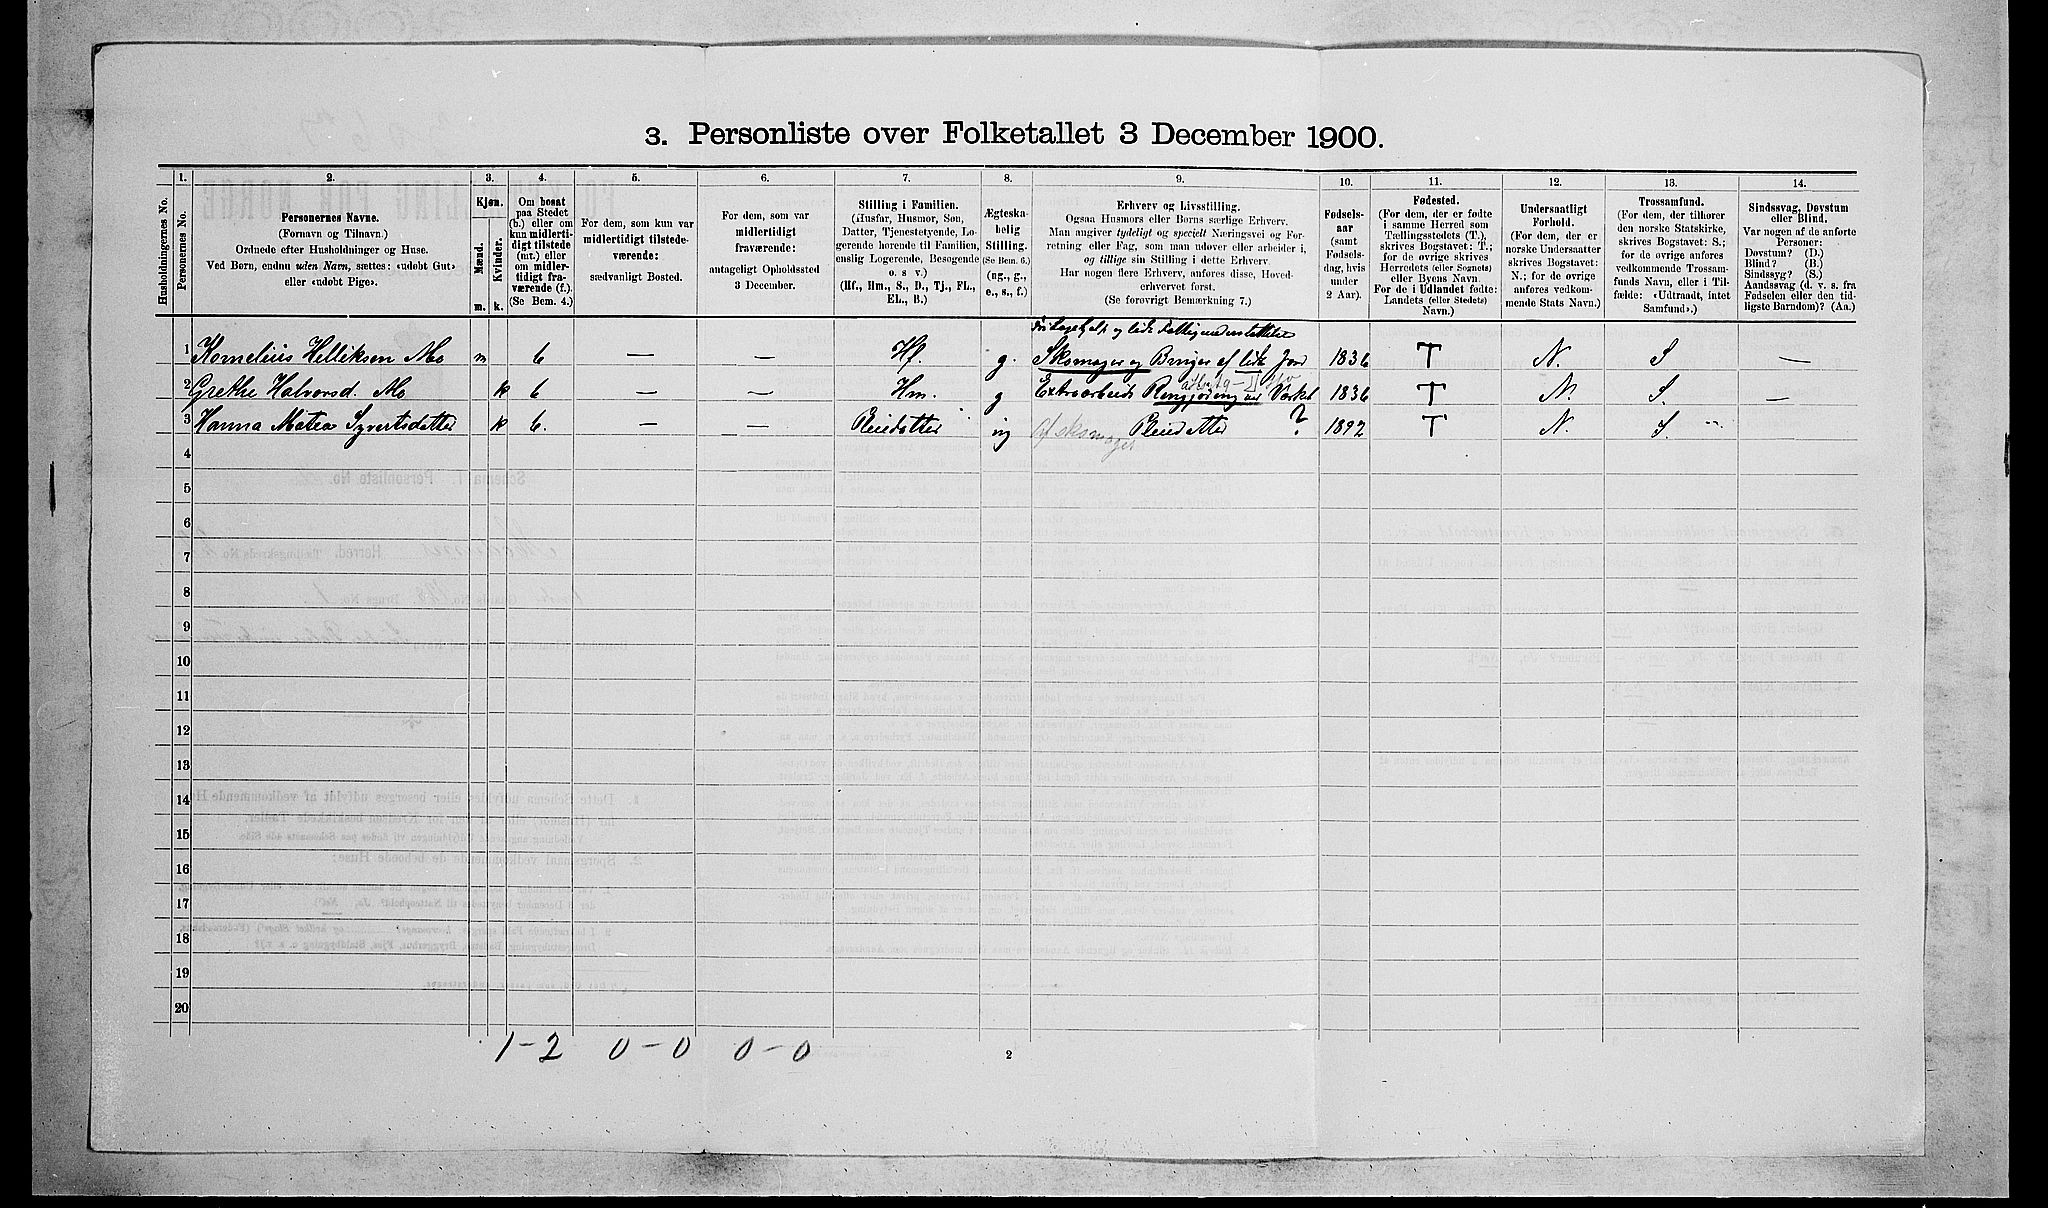 3. Personliste over Folketallet 3 December 1900.
1. 2. 3. 4. 5. 6. 7. 8. 9. 10. 11. 12. 13. 14.
Husholdningernes No.
Personernes No.
Personernes Navne.
(Fornavn og Tilnavn.)
Ordnede efter Husholdninger og Huse.
Ved Børn, endnu uden Navn, sættes: «udøbt Gut»
eller «udøbt Pige».
Kjøn.
Mænd.
Kvinder.
m. k.
Om bosat
paa Stedet
(b.) eller om
kun midlerti-
digt tilstede
(mt.) eller
om midler-
tidigt fra-
værende (f.).
(Se Bem. 4.)
For dem, som kun var
midlertidigt tilstede-
værende:
sædvanligt Bosted.
For dem, som var
midlertidigt
fraværende:
antageligt Opholdssted
3 December.
Stilling i Familien.
(Husfar, Husmor, Søn,
Datter, Tjenestetyende, Lo-
gerende hørende til Familien,
enslig Logerende, Besøgende
o. s v.)
(Hf., Hm., S., D., Tj., FL.,
EL., B.)
Ægteska-
belig
Stilling.
(Se Bem. 6.)
(ug., g.,
e., s., f.)
Erhverv og Livsstilling.
Ogsaa Husmors eller Børns særlige Erhverv.
Man angiver tydeligt og specielt Næringsvei og For-
retning eller Fag, som man udøver eller arbeider i,
og tillige sin Stilling i dette Erhverv.
Har nogen flere Erhverv, anføres disse, Hoved-
erhvervet først.
(Se forøvrigt Bemærkning 7.)
Fødsels-
aar
(samt
Fødsels-
dag, hvis
under
2 Aar).
Fødested.
(For dem, der er fødte
i samme Herred som
Tællingsstedets (T.),
skrives Bogstavet: T.;
for de øvrige skrives
Herredets (eller Sognets)
eller Byens Navn.
For de i Udlandet fødte:
Landets (eller Stedets)
Navn.)
Undersaatligt
Forhold.
(For dem, der er
norske Undersaatter
skrives Bogstavet:
N.; for de øvrige
anføres vedkom-
mende Stats Navn.)
Trossamfund.
(For dem, der tilhører
den norske Statskirke,
skrives Bogstavet: S.;
for de øvrige anføres
vedkommende Trossam-
funds Navn, eller i Til-
fælde: «Udtraadt, intet
Samfund».)
Sindssvag, Døvstum
eller Blind.
Var nogen af de anførte
Personer:
Døvstum? (D.)
Blind? (B.)
Sindssyg? (S.)
Aandssvag (d. v. s. fra
Fødselen eller den tid-
ligste Barndom)? (Aa.)
1 Kornelius Helliksen Mo m b — — Hf. g. Skomager og Bruger af lidt Jord 1836 T N. S —
2 Grethe Halvorsd. Mo k b — — Hm. g Extraarbeide Rengjøring ved Værket 1836 T N. S. —
3 Hanna Matea Syvertsdatter k b. — — Pleiedatter ug Af skomager Pleiedatter ? 1892 T N. S.
4
5
6
7
8
9
10
11
12
13
14
15
16
17
18
19
20
1-2 0-0 0-0
2